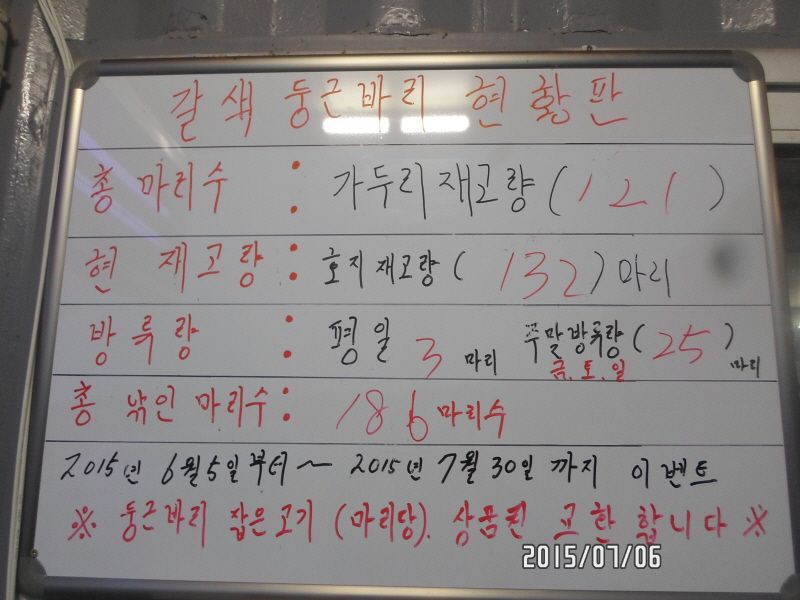 갈색 둥근바리 현황판
총 마리수 : 가두리재고량 (121)
현 재고량 : 호지재고량 (132) 마리
방류량 : 평일 3 마리 주말방류량 (25) 마리
금.토.일
총 낚인 마리수 : 186 마리수
2015년 6월5일부터 ~ 2015년 7월 30일 까지 이벤트
※ 둥근바리 잡은고기 (마리당). 상품권 교환 합니다 ※
2015/07/06